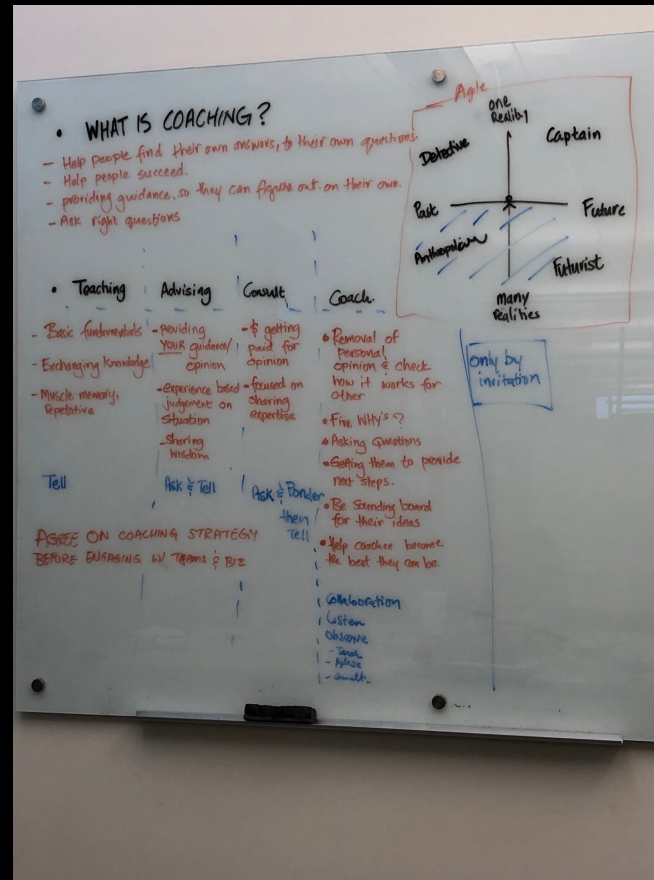 • WHAT IS COACHING?
- Help people find their own answers, to their own questions.
- Help people succeed.
- providing guidance, so they can figure out on their own.
- Ask right questions
Agile
one
Reality
Detective
Captain
Past
Future
Futurist
many
realities
• Teaching
- Basic fundamentals
- Exchanging knowledge
- Muscle memory,
repetative
Tell
Advising
- providing
YOUR guidance/
opinion
- experience based
judgement on
situation
- Sharing
wisdom
Ask & Tell
Consult
- $ getting
paid for
opinion
- focused on
sharing
expertise
Ask & Ponder
then
Tell
Coach.
• Removal of
personal
opinion & check
how it works for
other
• Five WHY's?
• Asking Questions
• Getting them to provide
next steps.
• Be Sounding board
for their ideas
• Help coachee become
the best they can be
Collaboration
Listen
Observe
- Teach
- Advize
- Consult
only by
invitation
AGREE ON COACHING STRATEGY
BEFORE ENGAGING W/ TEAMS & BIZ